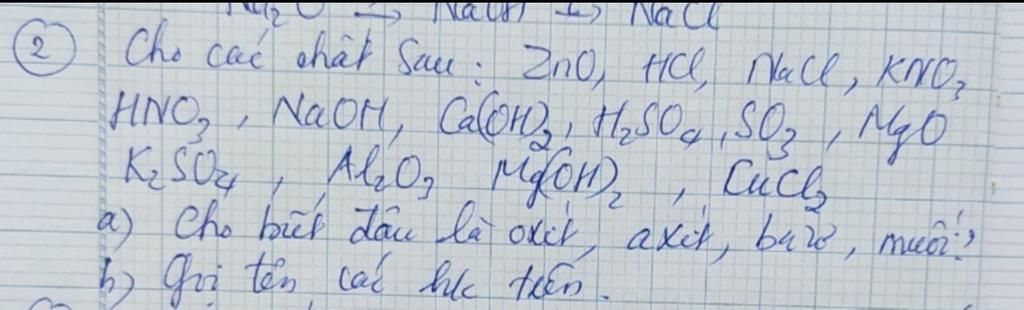 Na₂O → NaOH → NaCl
② Cho các chất sau: ZnO, HCl, NaCl, KNO₃
HNO₃, NaOH, Ca(OH)₂, H₂SO₄, SO₃, MgO
K₂SO₄, Al₂O₃ Mg(OH)₂, CuCl₂
a) Cho biết đâu là oxit, axit, bazơ, muối?
b) Gọi tên các hc trên.